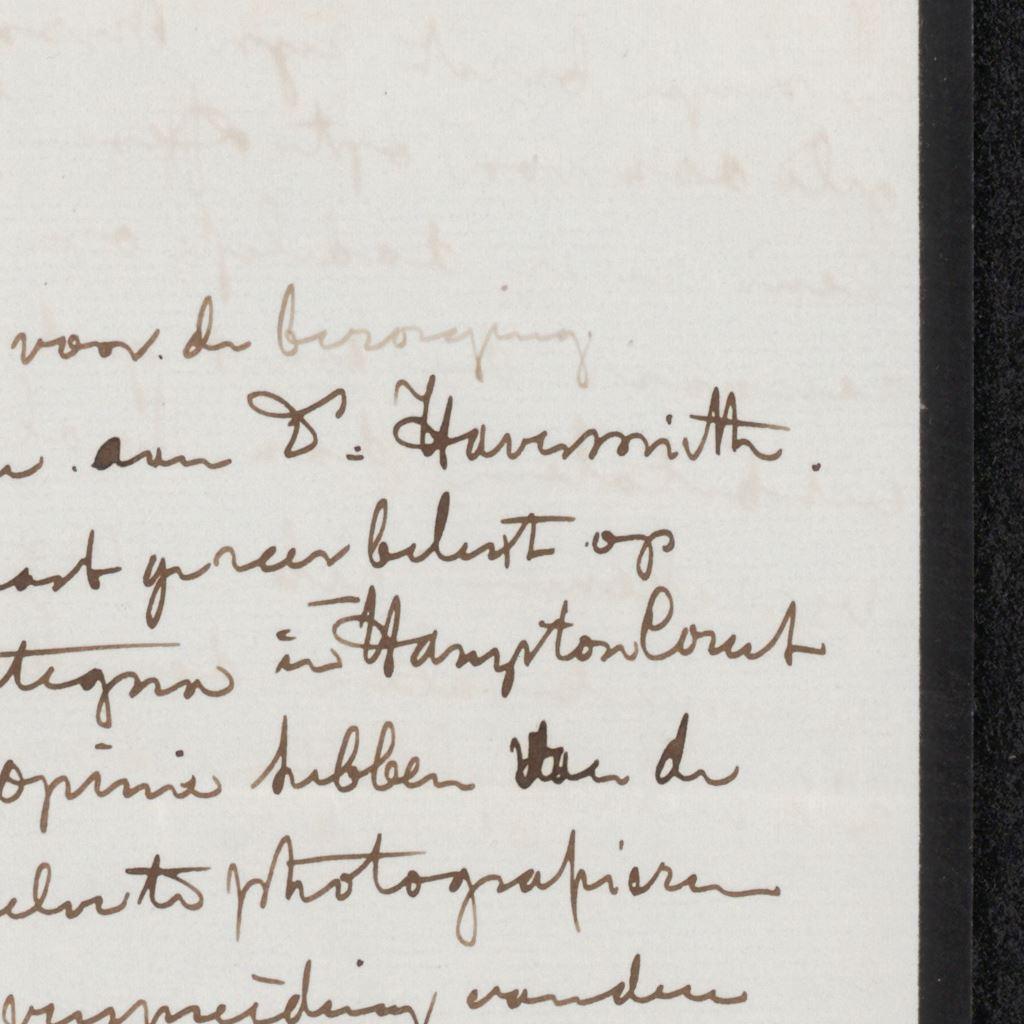 voor de bezorging
aan Dr. Haversmith.
zeer belust op
tegna in Hampton Court
opinie hebben van de
te photografieren
verspreiding van den